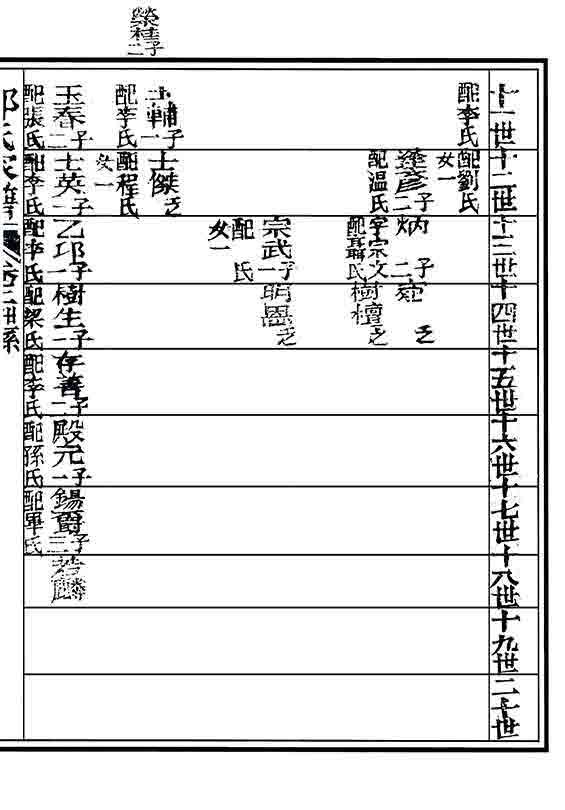 榮桂子二
十一世十二世十三世十四世十五世十六世十七世十八世十九世二十世
配李氏
配劉氏
女一
逢彥子二
配溫氏
炳子二
字宗文
配聶氏
壺乏
樹檀乏
宗武子一
配 氏
女一
明恩乏
士輔子一
配李氏
士傑乏
配程氏
女一
玉春子二
配張氏
士英子一
配李氏
乙邱子一
配李氏
樹生子一
配梁氏
存善子二
配李氏
殿元子一
配孫氏
錫爵子三
配畢氏
若麟
氏家譜 卷三 四系